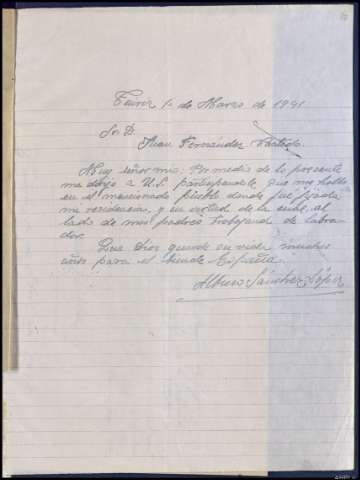 1º de Marzo de 1941
Sr. D.
Juan Fernández
Muy señor mio: Por medio de la presente
me dirijo a U.S. participandole que me hallo
en el mencionado pueblo donde fue fijada
mi residencia, y en virtud de la cual al
lado de mis padres trabajando de labra-
dor.
Que Dios guarde su vida muchos
años para el bien de España.
Sánchez López